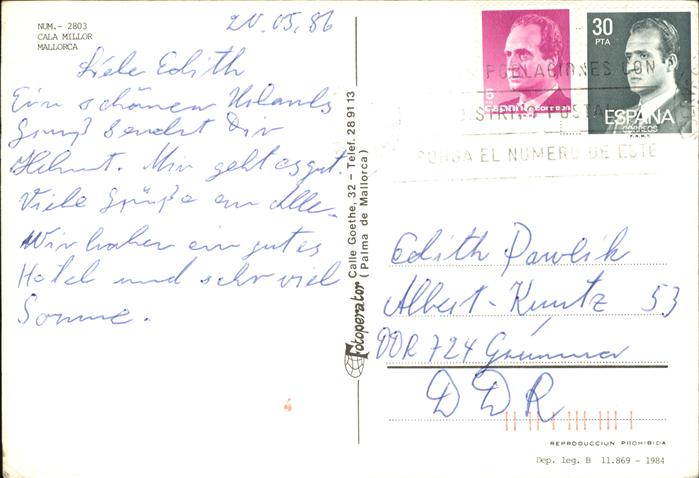 NUM.- 2803
CALA MILLOR
MALLORCA
20.05.86
Liebe Edith
Ein schönen Urlaubs
gruß sendet Dir
Helmut. Mir geht es gut.
Viele Grüße an Alle.
Wir haben ein gutes
Hotel und sehr viel
Sonne.
4
Fotoperator Calle Goethe, 32 - Telef. 28 91 13
(Palma de Mallorca)
5
España correos
30
PTA
ESPAÑA
CORREOS
F.N.M.T.
POBLACIONES CON
DISTRITO POSTAL
PONGA EL NUMERO DE ESTE
Edith Pawlik
Albert-Kuntz 53
DDR 724 Grimma
DDR
REPRODUCCIUN PROHIBIDA
Dep. leg. B 11.869 - 1984